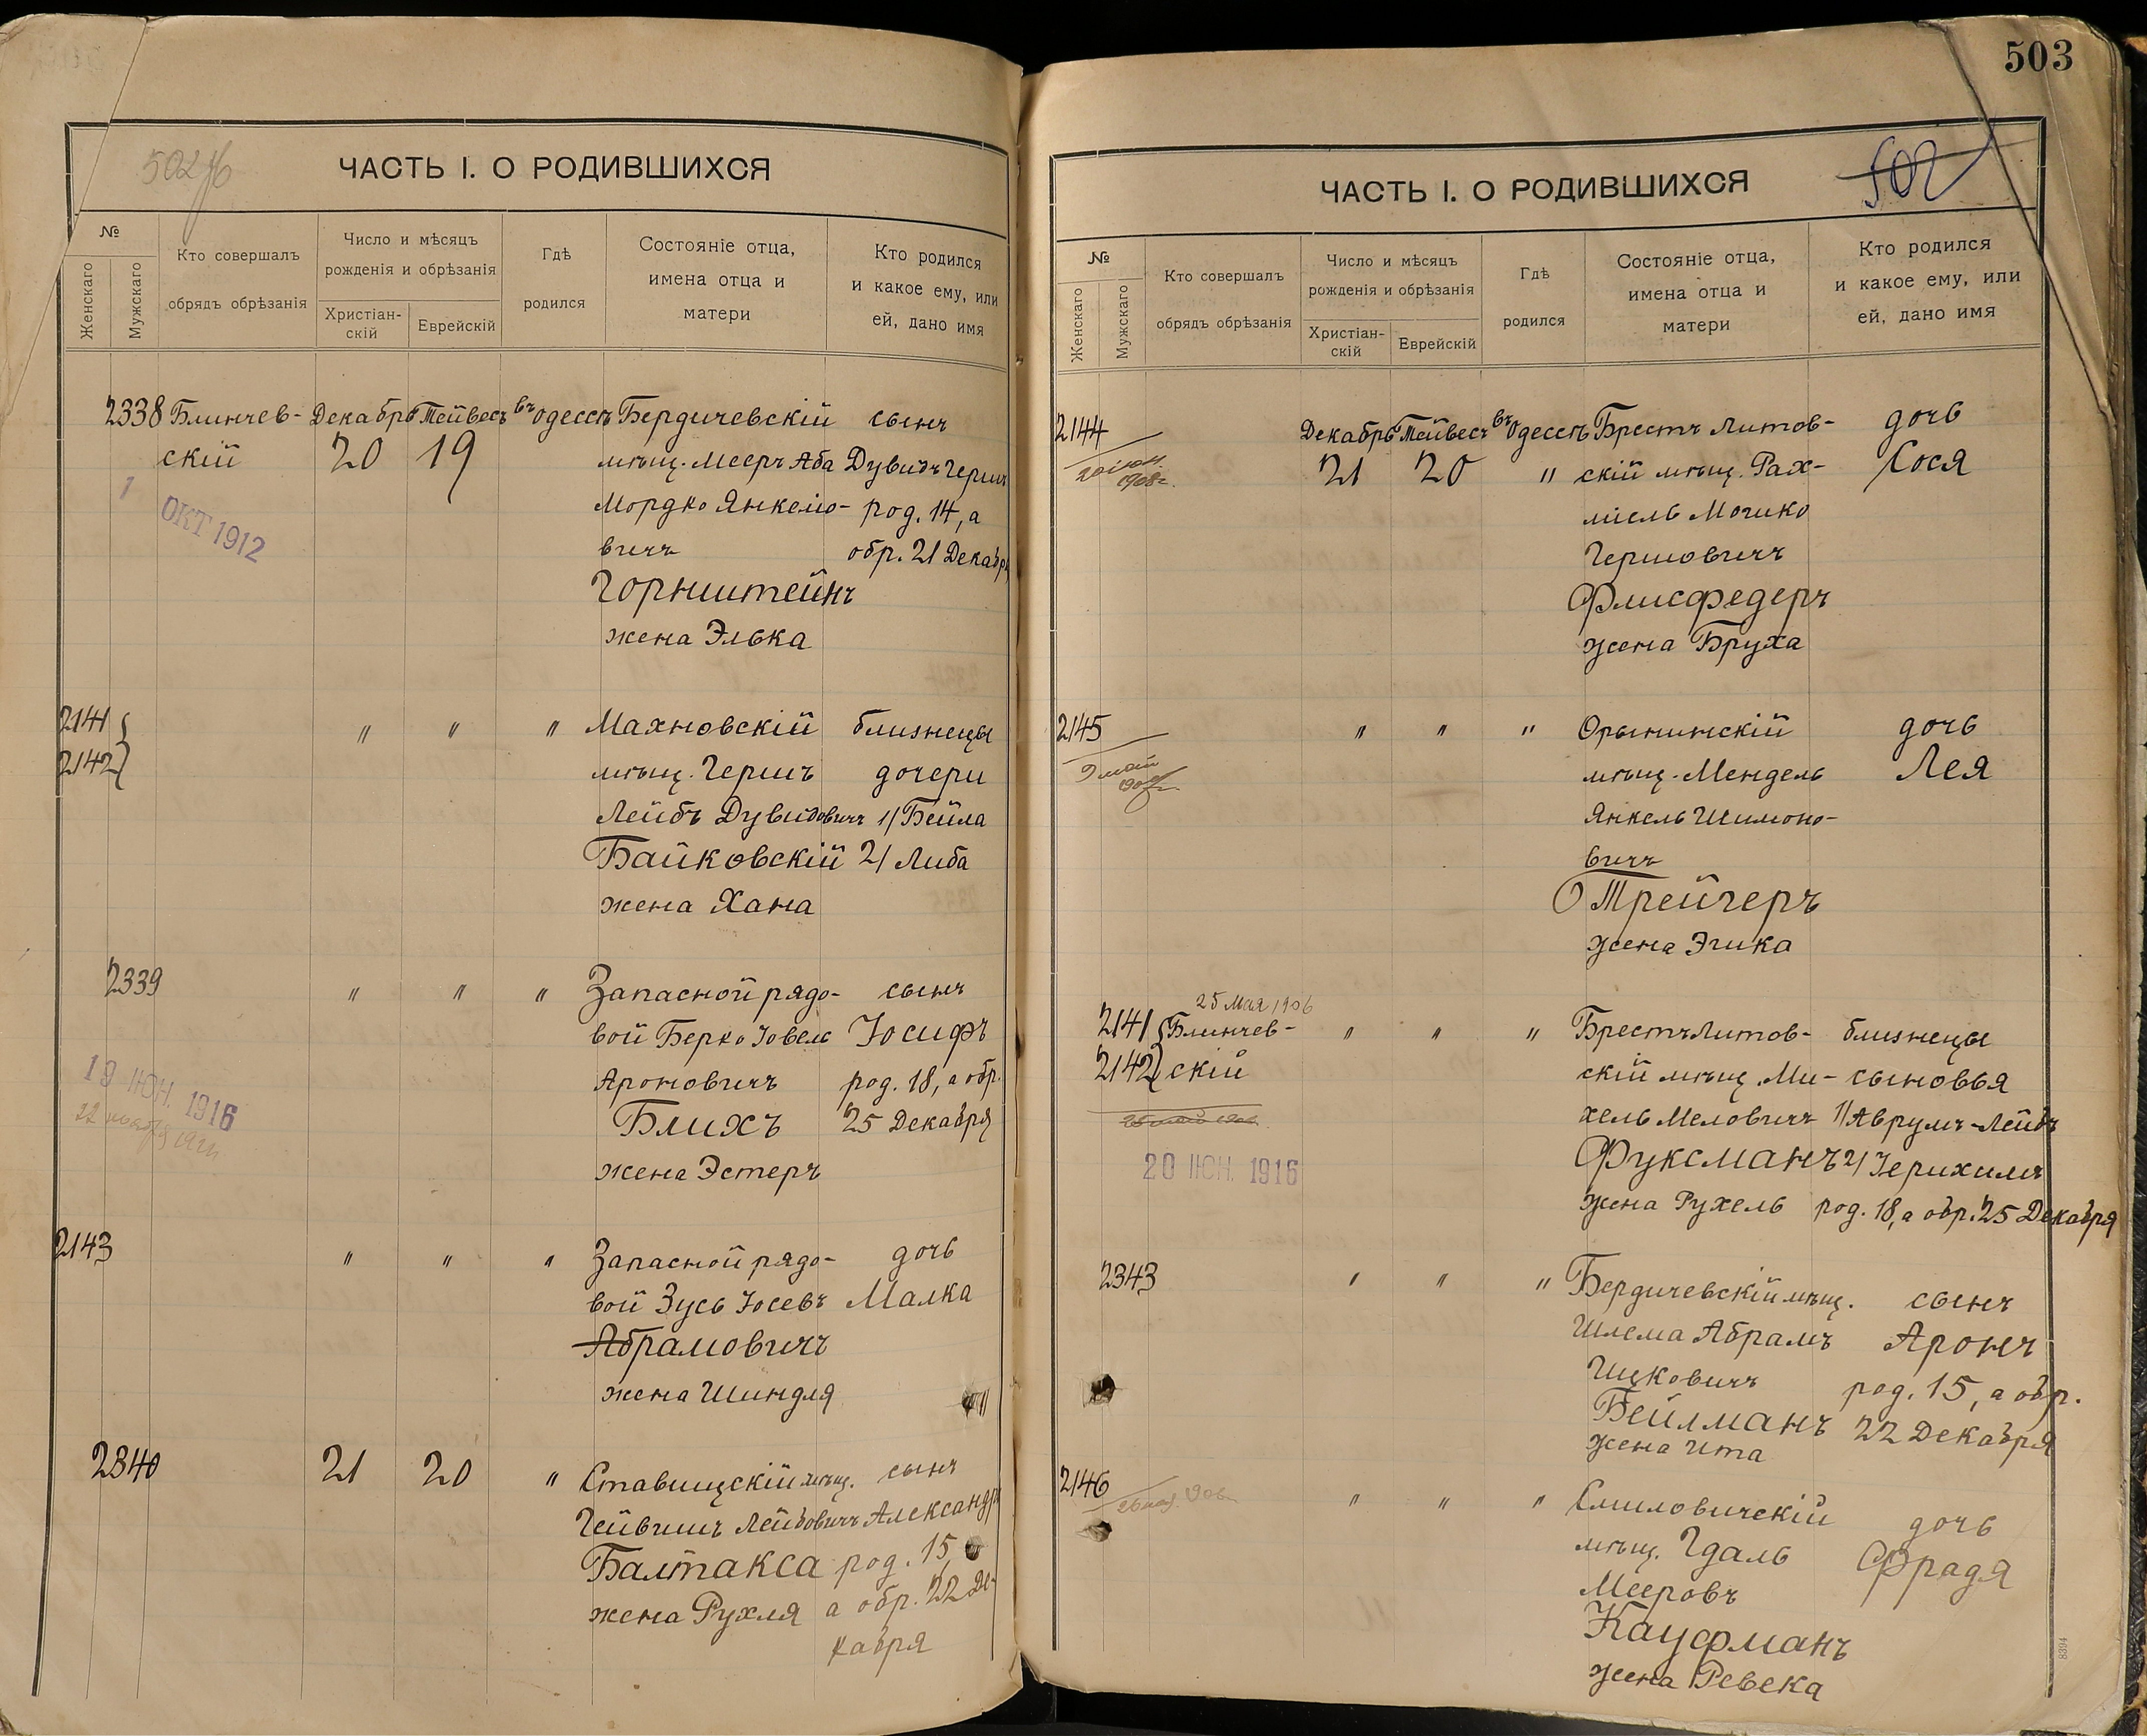 ЧАСТЬ I. О РОДИВШИХСЯ
№
Женскаго
Мужскаго
Кто совершалъ
обрядъ обрѣзанія
Число и мѣсяцъ
рожденія и обрѣзанія
Христіан-
скій
Еврейскій
Гдѣ
родился
Состояніе отца,
имена отца и
матери
Кто родился
и какое ему, или
ей, дано имя
2338 Блинчев- Декабрь Тейвесъ въ Одессѣ Бердичевскій сынъ
скій 20 19 мѣщ. Мееръ Аба Дувидъ Гершъ
1 ОКТ 1912
Мордко Янкелю- род. 14, а
вичъ обр. 21 Декабря
Горнштейнъ
жена Элька
2141 " " " Махновскій близнецы
2142 мѣщ. Гершъ дочери
Лейбъ Дувидовичъ 1/ Бейла
Байковскій 2/ Либа
жена Хана
2339 " " " Запасной рядо- сынъ
вой Берко Іовель Іосифъ
Ароновичъ род. 18, а обр.
19 ІЮН. 1916
Блихъ 25 Декабря
жена Эстеръ
2143 " " " Запасной рядо- дочь
вой Зусь Іосевъ Малка
Абрамовичъ
жена Шиндля
2340 21 20 " Ставищскій мѣщ. сынъ
Гейвишъ Лейбовичъ Александръ
Балтакса род. 15,
жена Рухля а обр. 22 Де-
кабря
503
502
ЧАСТЬ I. О РОДИВШИХСЯ
№
Женскаго
Мужскаго
Кто совершалъ
обрядъ обрѣзанія
Число и мѣсяцъ
рожденія и обрѣзанія
Христіан-
скій
Еврейскій
Гдѣ
родился
Состояніе отца,
имена отца и
матери
Кто родился
и какое ему, или
ей, дано имя
2144 Декабрь Тейвесъ въ Одессѣ Брестъ Литов- дочь
21 20 " скій мѣщ. Рах- Сося
міель Мошко
Гершовичъ
Флисфедеръ
жена Бруха
2145 " " " Орынинскій дочь
мѣщ. Мендель Лея
Янкель Шимоно-
вичъ
Трейгеръ
жена Эшка
25 Мая 1906
2141 Блинчев- " " " Брестъ Литов- близнецы
2142 скій скій мѣщ. Ми- сыновья
хель Меловичъ 1/ Аврумъ-Лейбъ
20 ІЮН. 1916
Фуксманъ 2/ Іерихимъ
жена Рухель род. 18, а обр. 25 Декабря
2343 " " " Бердичевскій мѣщ. сынъ
Шлема Абрамъ Аронъ
Ицковичъ род. 15, а обр.
Бейлманъ 22 Декабря
жена Ита
2146 " " " Смиловичскій дочь
мѣщ. Гдаль Фрадя
Мееровъ
Кауфманъ
жена Ревека
8394